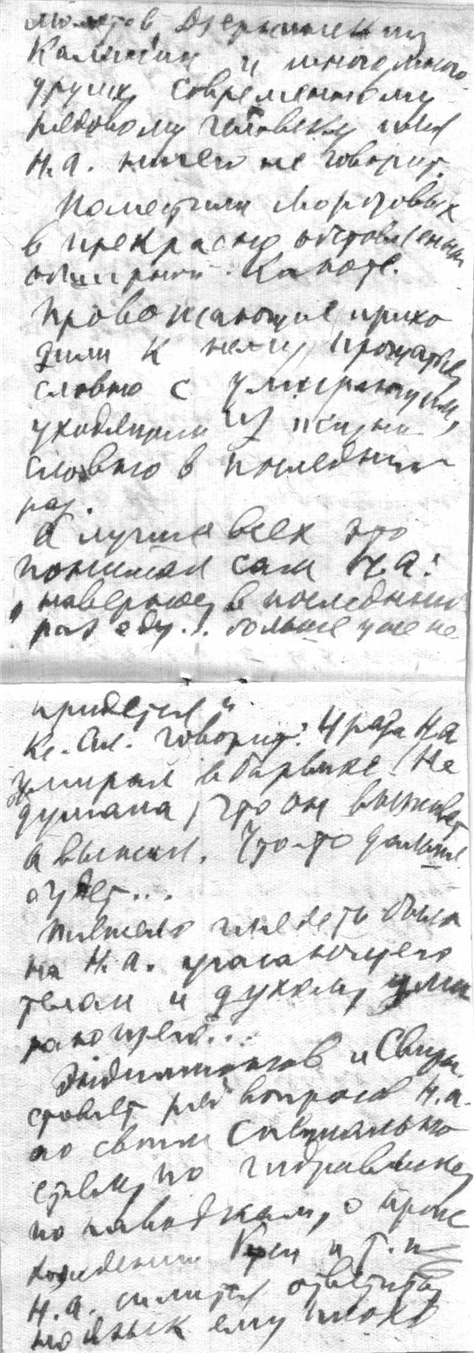 Молотов, Дзержинский
Калинин и много много
других современному
рядовому человеку имя
Н.А. ничего не говорит.
Поместили Морозовых
в прекрасно обставленной
обширной каюте.
Провожающие прихо
дили к нему прощаться
словно с умирающим,
уходящим из жизни
словно в последний
раз.
А лучше всех это
понимал сам Н.А:
"наверное, в последний
раз еду... больше уже не
придется"
Кс. Ал. говорит: 4 раза Н.А
умирал в Барвихе. Не
думала, что он выживет
а выжил. Что-то дальше
будет...
Тяжело глядеть было
на Н.А. угасающего
телом и духом, уми
рающего...
и Свира
ставят ряд вопросов Н.А.
по своим специально
стям, по гидравлике,
по паводкам, о проис
хождении Креи и т.п
Н.А. силится ответить,
но язык ему плохо